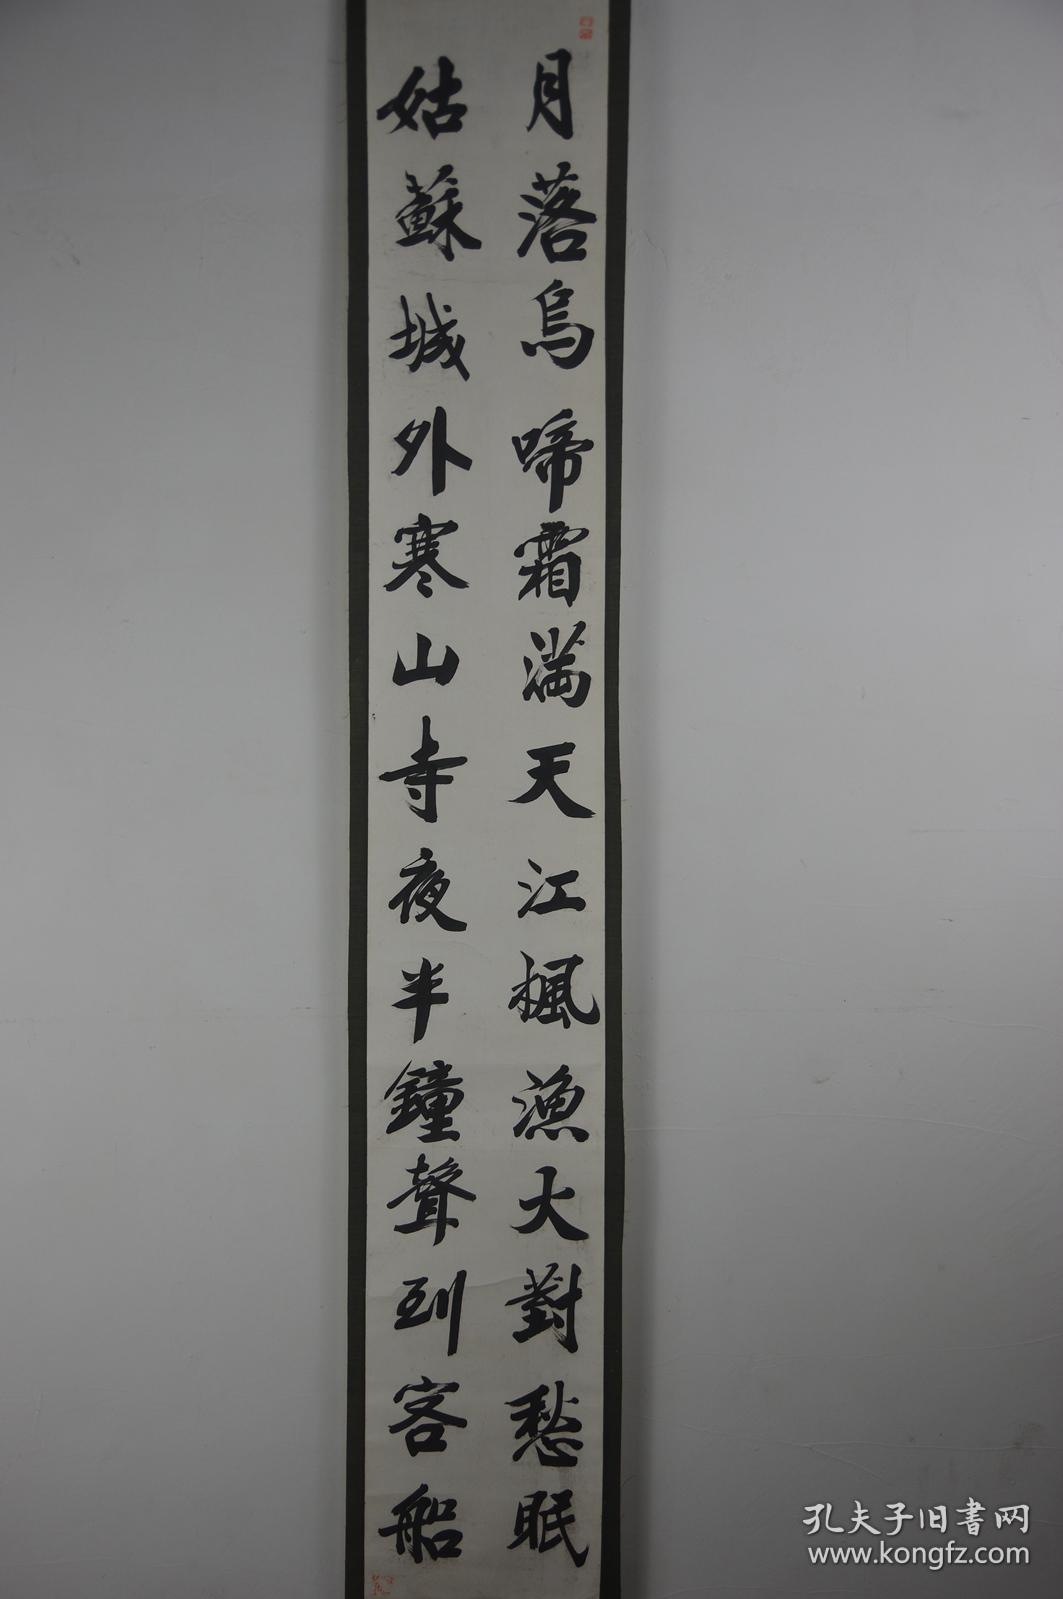 月落烏啼霜満天江楓漁火對愁眠
姑蘇城外寒山寺夜半鐘聲到客船
孔夫子旧書网
www.kongfz.com